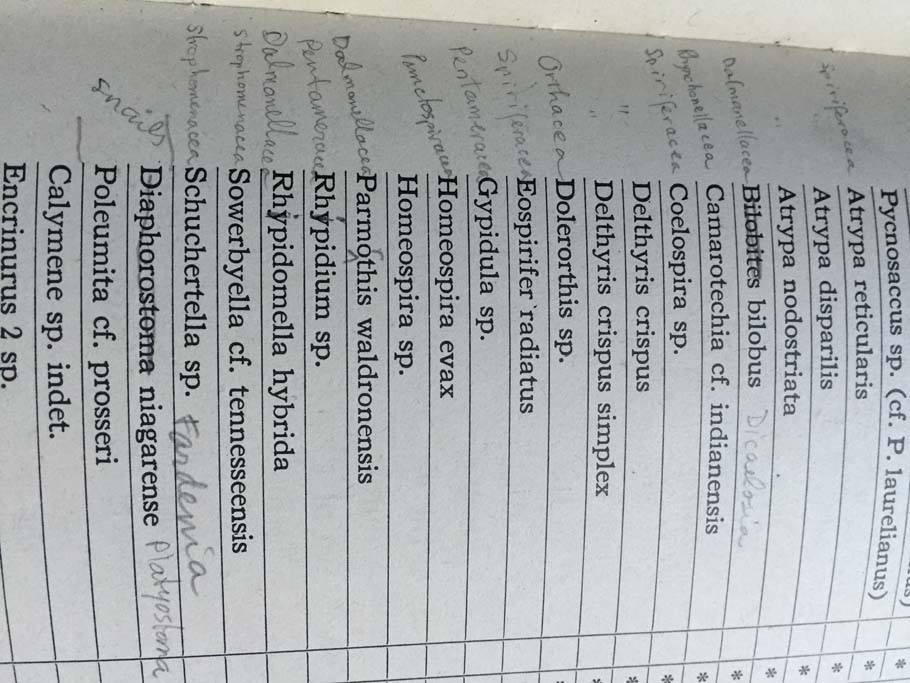 Pycnosaccus sp. (cf. P. laurelianus) *
Spiriferacea Atrypa reticularis *
Atrypa disparilis *
" Atrypa nodostriata *
Dalmanellacea Bilobites bilobus Dicaelosia *
Rhynchonellacea Camarotechia cf. indianensis *
Spiriferacea Coelospira sp. *
" Delthyris crispus
" Delthyris crispus simplex
Orthacea Dolerorthis sp.
Spiriferacea Eospirifer radiatus
Pentameracea Gypidula sp.
Punctospiracea Homeospira evax
Homeospira sp.
Dalmanellacea Parmothis waldronensis
Pentameracea Rhipidium sp.
Dalmanellacea Rhipidomella hybrida
strophomenacea Sowerbyella cf. tennesseensis
strophomenacea Schuchertella sp. Fardenia
snails Diaphorostoma niagarense Platyostoma
Poleumita cf. prosseri
Calymene sp. indet.
Encrinurus 2 sp.